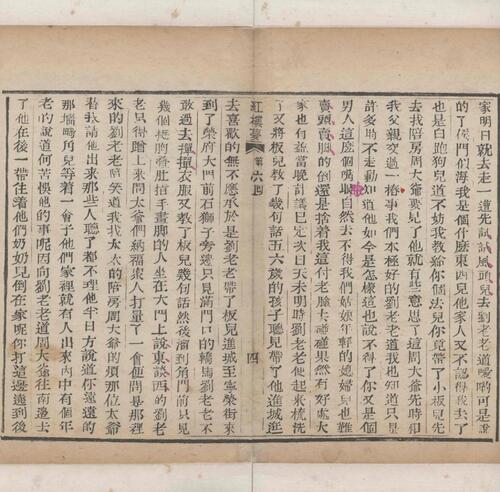 家明日就去走一遭先試試風頭兒去劉老老道噯喲可是說
的了侯門似海我是個什庅東西兒他家人又不認得我去了
也是白跑狗兒道不妨我教給你個法兒你竟帶了小板兒先
去找陪房周大爺要見了他就有些意思了這周大爺先時和
我父親交過一樁事我們本極好的劉老老道我也知道只是
許多時不走動知道他如今是怎樣這也說不得了你又是個
男人這麼個嘴臉自然去不得我們姑娘年輕的媳婦兒也難
賣頭賣脚的倒還是捨着我這付老臉去碰碰果然有好處大
家也有益當晚計議已定次日天未明時劉老老便起來梳洗
了又將板兒教了幾句話五六歲的孩子聽見帶了他進城逛
紅樓夢 第六回 四
去喜歡的無不應承於是劉老老帶了板兒進城至寧榮街來
到了榮府大門前石獅子旁邊只見滿門口的轎馬劉老老不
敢過去撣撣衣服又教了板兒幾句話然後溜到角門前只見
幾個挺胸疊肚指手畫脚的人坐在大門上說東談西的劉老
老只得蹭上來問太爺們納福衆人打量了一會便問是那裡
來的劉老老陪笑道我找太太的陪房周大爺的煩那位太爺
替我請他出來那些人聽了都不理他半日方說道你遠遠的
那墻畸角兒等着一會子他們家裡就有人出來內中有個年
老的說道何苦悞他的事呢因向劉老老道周大爺往南邊去
了他在後一帶住着他們奶奶兒倒在家呢你打這邊遶到後